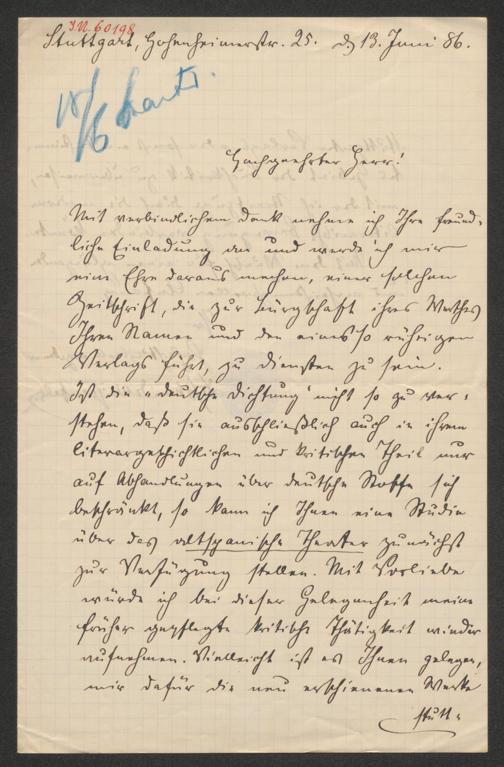 J.N. 60198
Stuttgart, Hohenheimerstr. 25. d. 13. Juni 86.
18/6
Hochgeehrter Herr!
Mit verbindlichem Dank nehme ich Ihre freund-
liche Einladung an und werde ich mir
eine Ehre daraus machen, einer solchen
Zeitschrift, die zur Bürgschaft ihres Werthes
Ihren Namen und den eines so rührigen
Verlags führt, zu Diensten zu sein.
Ist die „deutsche Dichtung" nicht so zu ver-
stehen, daß sie ausschließlich auch in ihrem
literargeschichtlichen und kritischen Theil nur
auf Abhandlungen über deutsche Stoffe sich
beschränkt, so kann ich Ihnen eine Studie
über das altspanische Theater zunächst
zur Verfügung stellen. Mit Vorliebe
würde ich bei dieser Gelegenheit meine
früher gepflegte kritische Thätigkeit wieder
aufnehmen. Vielleicht ist es Ihnen gelegen,
mir dafür die neu erschienenen Werke
stutt-